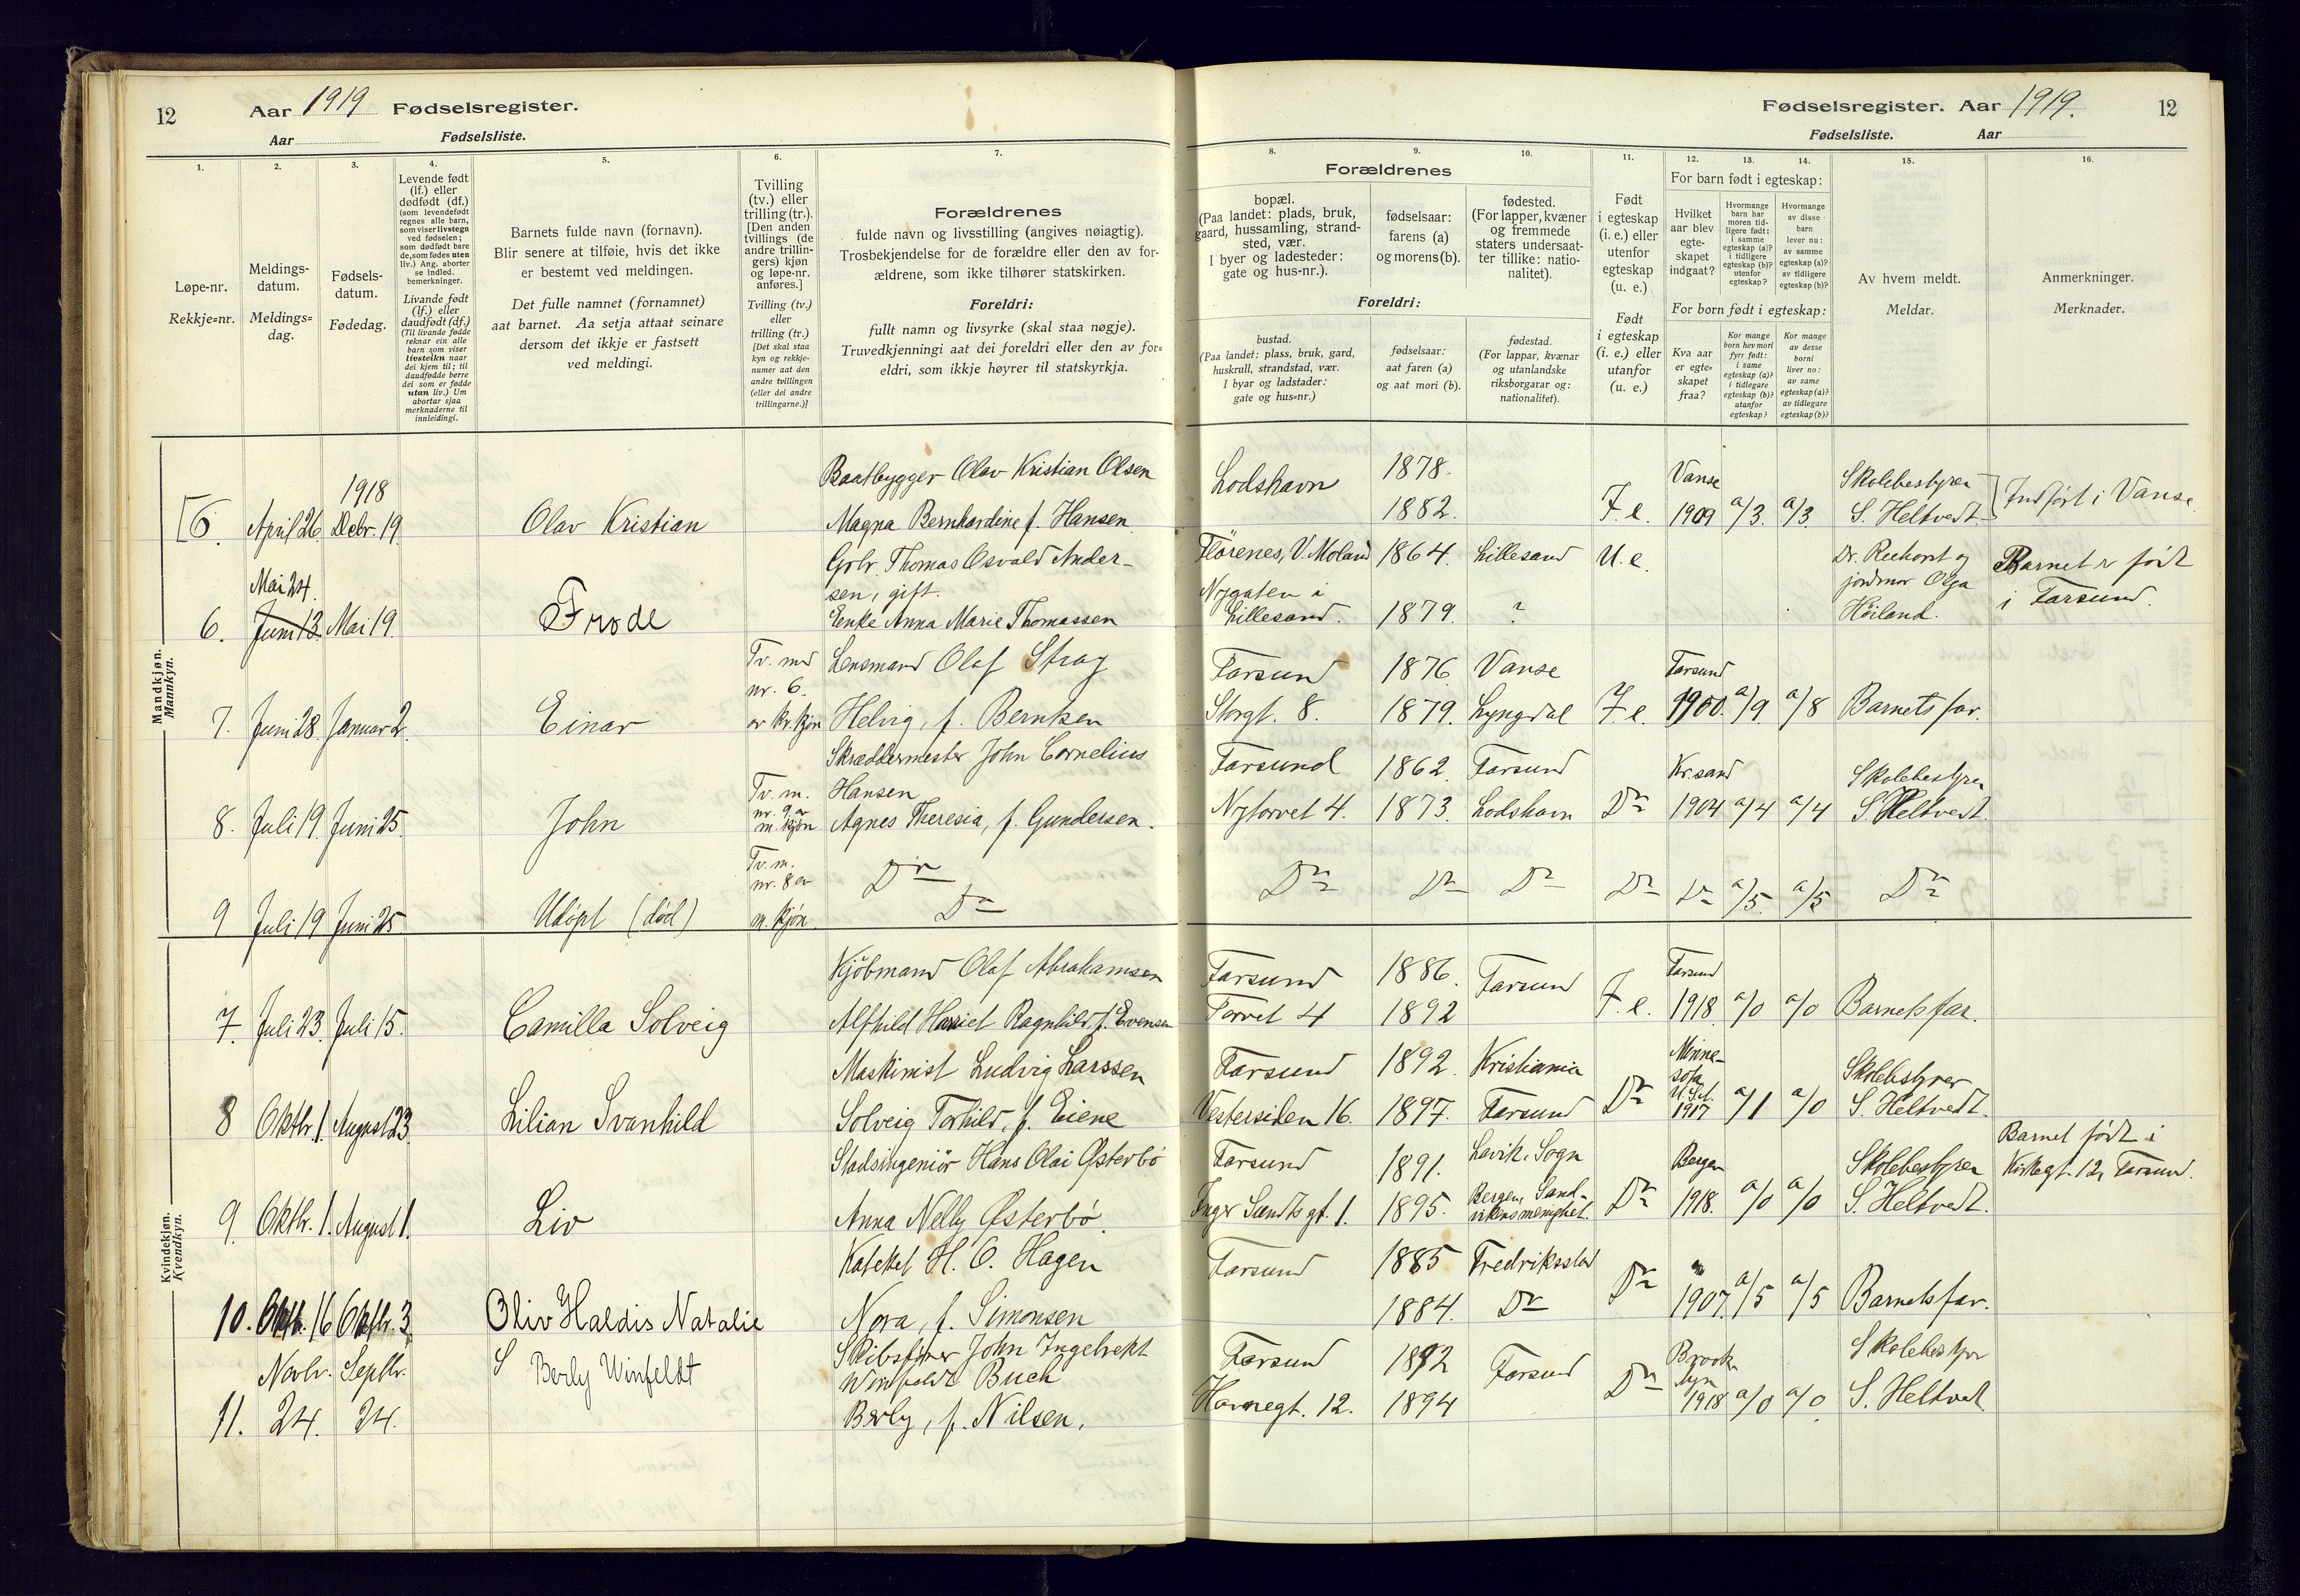 12
Aar 1919 Fødselsregister.
Aar Fødselsliste.
Fødselsregister. Aar 1919.
12
Fødselsliste. Aar
1.
2.
3.
4.
5.
6.
7.
Løpe-nr.
Rekkje=nr.
Meldings-
datum.
Meldings=
dag.
Fødsels-
datum.
Fødedag.
Levende født
(lf.) eller
dødfødt (df.)
(som levendefødt
regnes alle barn,
som viser livstegn
ved fødselen;
som dødfødt bare
de, som fødes uten
liv.) Ang. aborter
se indled.
bemerkninger.
Livande født
(lf.) eller
daudfødt (df.)
(Til livande fødde
reknar ein alle
barn som viser
livsteikn naar
dei kjem til; til
daudfødde berre
dei som er fødde
utan liv.) Um
abortar sjaa
merknaderne til
innleidingi.
Barnets fulde navn (fornavn).
Blir senere at tilføie, hvis det ikke
er bestemt ved meldingen.
Det fulle namnet (fornamnet)
aat barnet. Aa setja attaat seinare
dersom det ikkje er fastsett
ved meldingi.
Tvilling
(tv.) eller
trilling (tr.).
[Den anden
tvillings (de
andre trillin-
gers) kjøn
og løpe-nr.
anføres.]
Tvilling (tv.)
eller
trilling (tr.)
[Det skal staa
kyn og rekkje-
numer aat den
andre tvillingen
(eller dei andre
trillingarne.)]
Forældrenes
fulde navn og livsstilling (angives nøiagtig).
Trosbekjendelse for de forældre eller den av for-
ældrene, som ikke tilhører statskirken.
Foreldri:
fullt namn og livsyrke (skal staa nøgje).
Truvedkjenningi aat dei foreldri eller den av for=
eldri, som ikkje høyrer til statskyrkja.
8.
9.
10.
11.
12.
13.
14.
15.
16.
Forældrenes
bopæl.
(Paa landet: plads, bruk,
gaard, hussamling, strand-
sted, vær.
I byer og ladesteder:
gate og hus-nr.).
fødselsaar:
farens (a)
og morens (b).
fødested.
(For lapper, kvæner
og fremmede
staters undersaat-
ter tillike: natio-
nalitet).
Foreldri:
bustad.
(Paa landet: plass, bruk, gard,
huskrull, strandstad, vær.
I byar og ladstader:
gate og hus=nr.)
fødselsaar:
aat faren (a)
og aat mori (b).
fødestad.
(For lappar, kvænar
og utanlandske
riksborgarar og:
nationalitet).
Født
i egteskap
(i. e.) eller
utenfor
egteskap
(u. e.)
Født
i egteskap
(i. e.) eller
utanfor
(u. e.)
For barn født i egteskap:
Hvilket
aar blev
egte-
skapet
indgaat?
Hvormange
barn har
moren tid-
ligere født:
i samme
egteskap (a)?
i tidligere
egteskap (b)?
utenfor
egteskap?
Hvormange
av disse
barn
lever nu:
av samme
egteskap (a)?
av tidligere
egteskap (b)?
For born født i egteskap:
Kva aar
er egte=
skapet
fraa?
Kor mange
born hev mori
fyrr født:
i same
egteskap (a)?
i tidlegare
egteskap (b)?
utanfor
egteskap?
Kor mange
av desse
borni
liver no:
av same
egteskap (a)?
av tidlegare
egteskap (b)?
Av hvem meldt.
Meldar.
Anmerkninger.
Merknader.
Mandkjøn.
Mannkyn.
[6. April 26. 1918 Debr. 19. Olav Kristian
Baatbygger Olav Kristian Olsen
Magna Bernhardine f. Hansen
Lodshavn 1878. 1882. I. e. Vanse 1909 a/3. a/3 Skolebestyrer S. Heltvedt. Indført i Vanse
6. Mai 24. Juni 13. Mai 19. Frode
Grbr. Thomas Osvald Ander-
sen, gift.
Enke Anna Marie Thomassen
Flörenes, V. Moland 1864. Lillesand U. e.
Nygaten i
Lillesand. 1879. ?
Dr. Reehorst og
jordmor Olga
Höiland.
Barnet er født
i Farsund.
7. Juni 28. Januar 2. Einar
Tv. med
nr. 6.
av kv.kjön
Lensmand Olaf Stray
Helvig, f. Berntsen
Farsund 1876 Vanse
Storgt. 8. 1879. Lyngdal I. e. Farsund 1900. a/9 a/8 Barnets far.
8. Juli 19. Juni 25. John
Tv. m.
nr. 9 av
m. kjön
Skræddermester John Cornelius
Hansen
Agnes Theresia, f. Gundersen.
Farsund 1862. Farsund
Nytorvet 4. 1873. Lodshavn Do Kr.sand 1904 a/4 a/4 Skolebestyrer S. Heltvedt.
9 Juli 19 Juni 25 Udöpt (död)
Tv. m.
nr. 8 av
m. kjön.
Do
Do
Do Do Do Do Do a/5. a/5 Do
Kvindekjøn.
Kvendkyn.
7. Juli 23. Juli 15. Camilla Solveig
Kjöbmand Olaf Abrahamsen
Alfhild Harriet Ragnhild f. Evensen
Farsund 1886. Farsund
Torvet 4 1892 I. e. Farsund 1918 a/0 a/0 Barnets far.
8 Oktbr. 1. August 23. Lilian Svanhild
Maskinist Ludvig Larssen
Solveig Torhild, f. Eiene
Farsund 1892. Kristiania
Vestersiden 16. 1897. Farsund Do Minne-
sota
1917 a/1 a/0 Skolebestyrer S. Heltvedt.
9. Oktbr. 1. August 1. Liv
Stadsingeniör Hans Olai Østerbö
Anna Nelly Østerbö.
Farsund 1891. Lavik, Sogn
Inger Sundts gt. 1. 1895. Bergen, Sand-
vikens menighet. Do Bergen 1918. a/0 a/0 Skolebestyrer S. Heltvedt.
Barnet født i
Kirkegt. 12, Farsund.
10. Oktb. 16 Oktbr. 3. Oliv Haldis Natalie
Kateket H. O. Hagen
Nora, f. Simonsen
Farsund 1885 Fredriksstad
1884. Do Do 1907. a/5 a/5 Barnets far.
11. Novbr. 24. Septbr. 24. Berly Winfeldt
Skibsfører John Ingebrekt
Winfeldt Buch
Berly, f. Nilsen.
Farsund 1892 Farsund
Havnegt. 12. 1894 Do Brook-
lyn
1918 a/0 a/0 Skolebestyr S. Heltvedt.